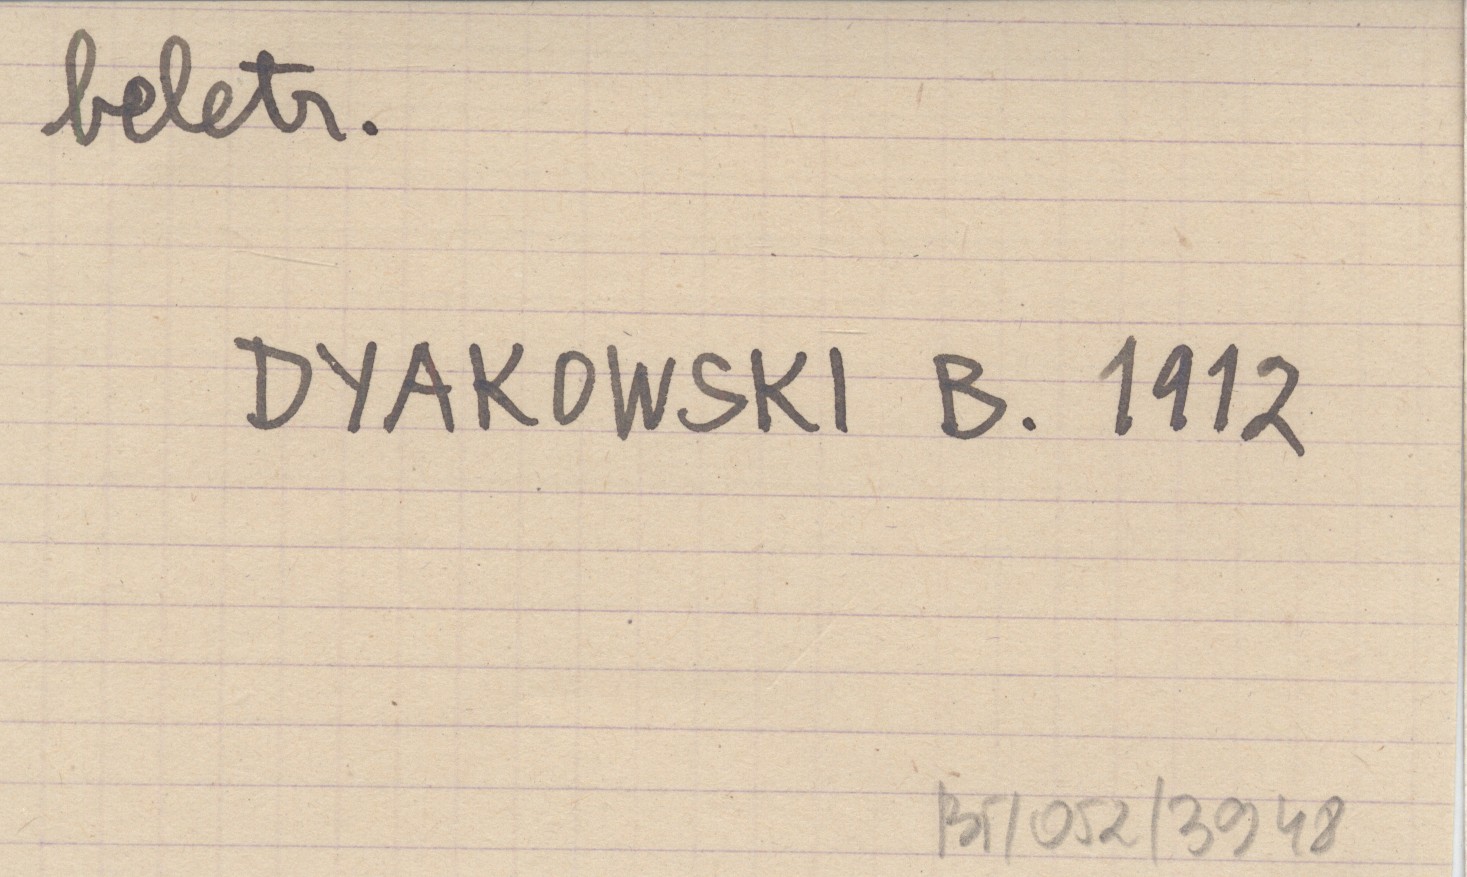 beletr.
DYAKOWSKI B. 1912
BT/052/3948